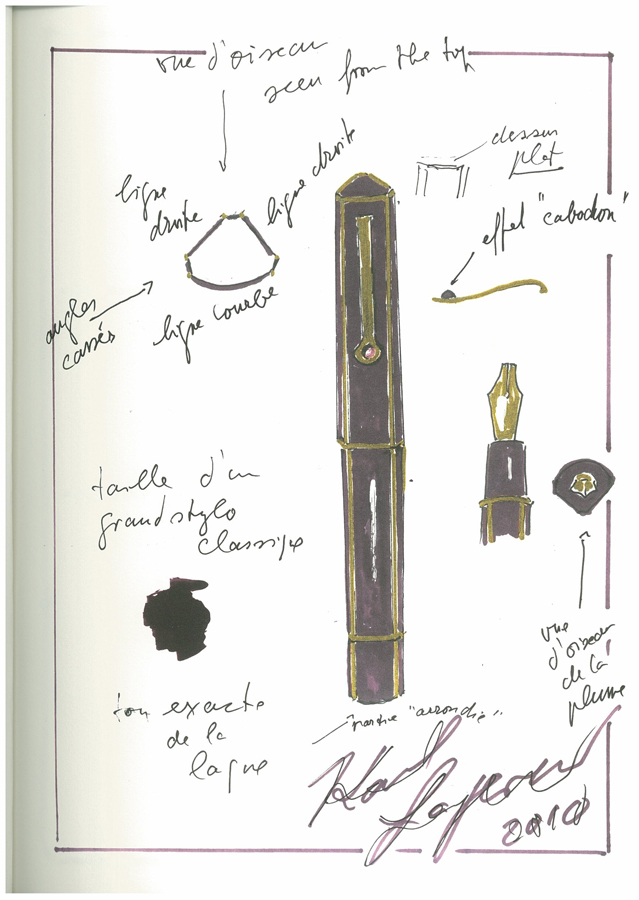 vue d'oiseau
seen from the top
dessus
plat
ligne
droite
ligne droite
effet "cabochon"
angles
cassés
ligne courbe
taille d'un
grand stylo
classique
vue
d'oiseau
de la
plume
ton exacte
de la
laque
partie "arrondie"
Karl
Lagerfeld
2010